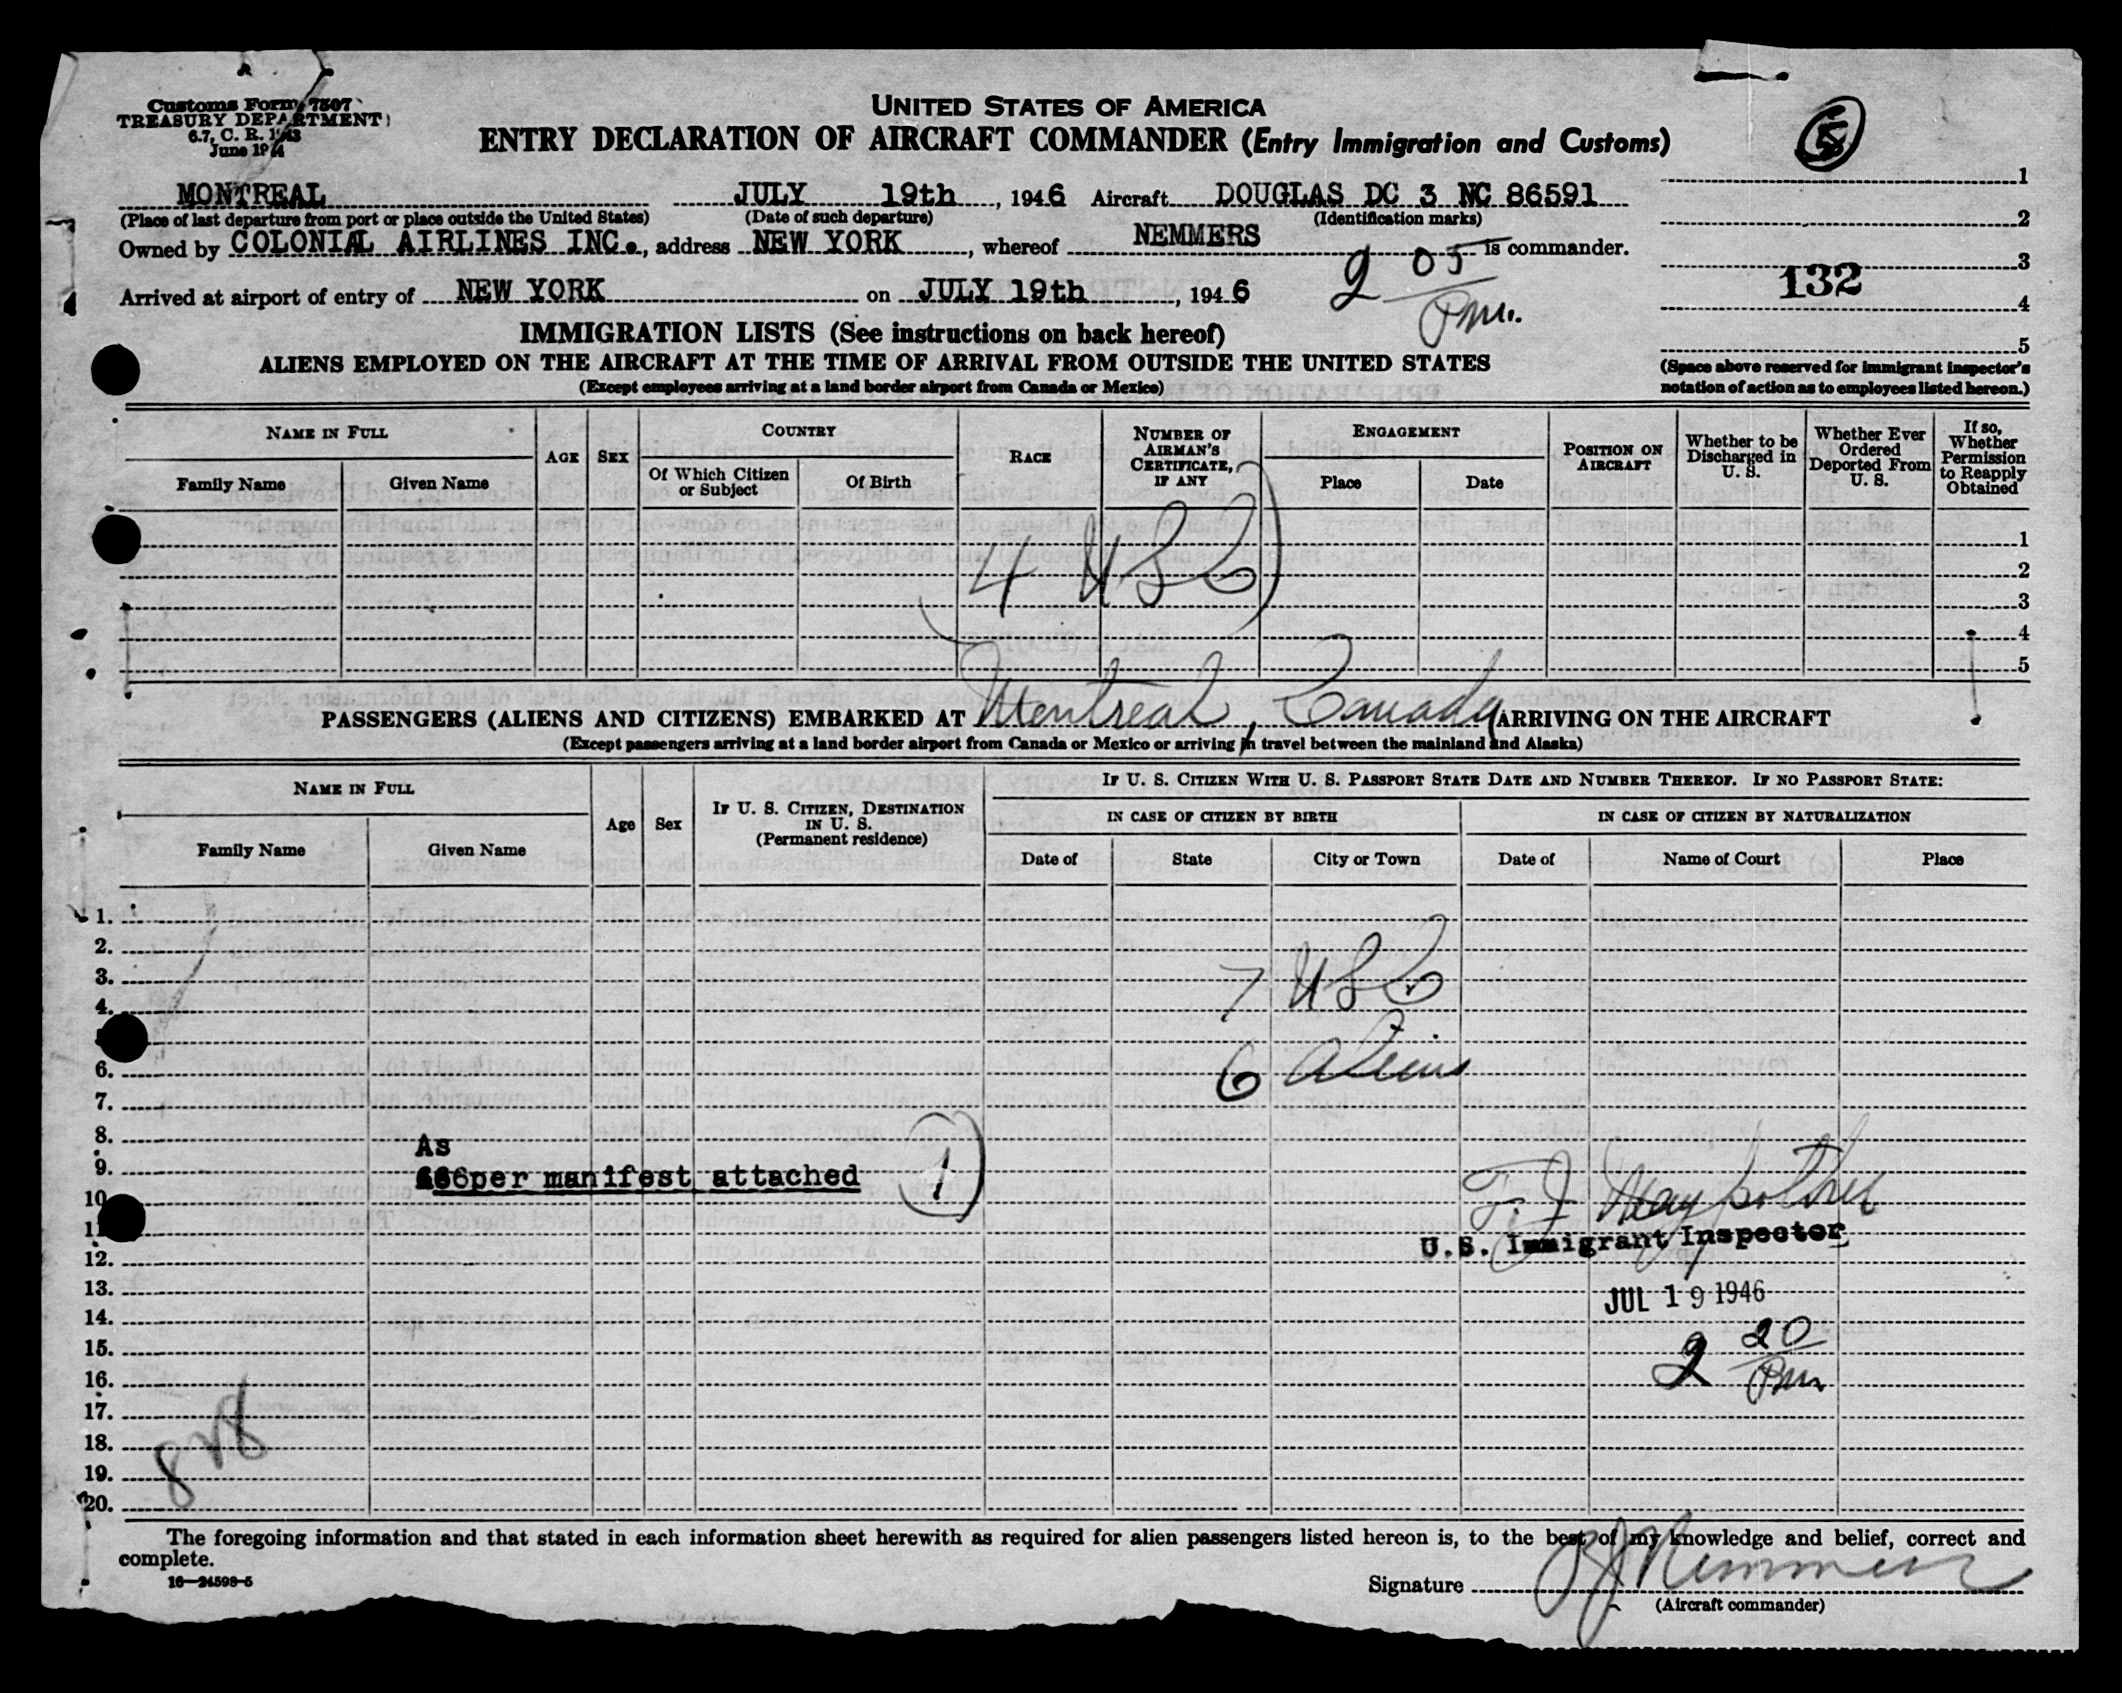 Customs Form 7507
TREASURY DEPARTMENT
6.7, C. R. 1943
June 1944
UNITED STATES OF AMERICA
ENTRY DECLARATION OF AIRCRAFT COMMANDER (Entry Immigration and Customs)
5
MONTREAL JULY 19th, 1946 Aircraft DOUGLAS DC 3 NC 86591
(Place of last departure from port or place outside the United States) (Date of such departure) (Identification marks)
Owned by COLONIAL AIRLINES INC., address NEW YORK, whereof NEMMERS is commander.
Arrived at airport of entry of NEW YORK on JULY 19th, 1946 2 05 Pm.
1
2
3
132
4
5
(Space above reserved for immigrant inspector's
notation of action as to employees listed hereon.)
IMMIGRATION LISTS (See instructions on back hereof)
ALIENS EMPLOYED ON THE AIRCRAFT AT THE TIME OF ARRIVAL FROM OUTSIDE THE UNITED STATES
(Except employees arriving at a land border airport from Canada or Mexico)
NAME IN FULL
Family Name Given Name
AGE SEX
COUNTRY
Of Which Citizen or Subject Of Birth
RACE
NUMBER OF AIRMAN'S CERTIFICATE, IF ANY
ENGAGEMENT
Place Date
POSITION ON AIRCRAFT
Whether to be Discharged in U. S.
Whether Ever Ordered Deported From U. S.
If so, Whether Permission to Reapply Obtained
1
2
3
4
5
4 USC
PASSENGERS (ALIENS AND CITIZENS) EMBARKED AT Montreal, Canada ARRIVING ON THE AIRCRAFT
(Except passengers arriving at a land border airport from Canada or Mexico or arriving in travel between the mainland and Alaska)
NAME IN FULL
Family Name Given Name
Age Sex
IF U. S. CITIZEN, DESTINATION IN U. S.
(Permanent residence)
IF U. S. CITIZEN WITH U. S. PASSPORT STATE DATE AND NUMBER THEREOF. IF NO PASSPORT STATE:
IN CASE OF CITIZEN BY BIRTH IN CASE OF CITIZEN BY NATURALIZATION
Date of State City or Town Date of Name of Court Place
1.
2.
3. 7 USC
4.
6. 6 aliens
7.
8. As
9. per manifest attached 1
10.
11. U.S. Immigrant Inspector
12.
13. JUL 19 1946
14.
15. 2 20 Pm
16.
17.
18.
19.
20.
The foregoing information and that stated in each information sheet herewith as required for alien passengers listed hereon is, to the best of my knowledge and belief, correct and
complete.
16—24598-5
Signature Nemmers
(Aircraft commander)